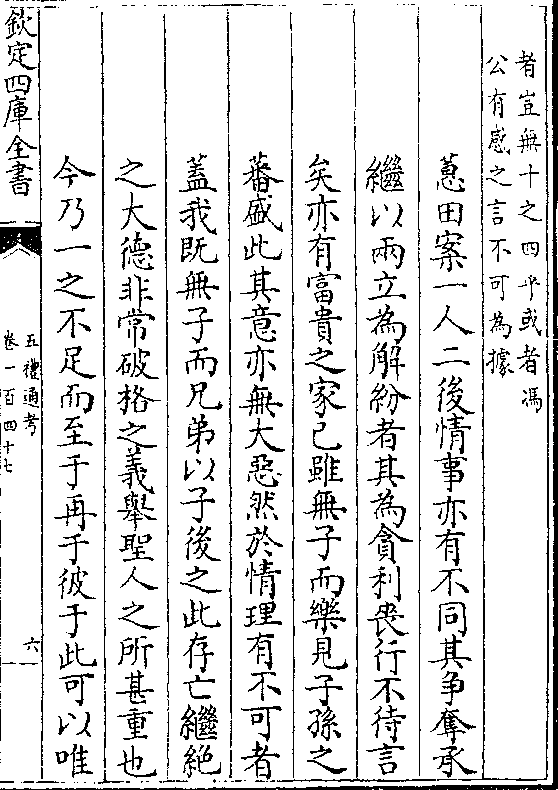 者豈無十之四乎或者馮
公有感之言不可為據
蕙田案一人二後情事亦有不同其争奪承
繼以兩立為解紛者其為貪利喪行不待言
矣亦有富貴之家己雖無子而樂見子孫之
蕃盛此其意亦無大惡然於情理有不可者
蓋我既無子而兄弟以子後之此存亡繼絶
之大德非常破格之義舉聖人之所甚重也
今乃一之不足而至于再于彼于此可以唯
欽定四庫全書
五禮通考
卷一百四十七
六